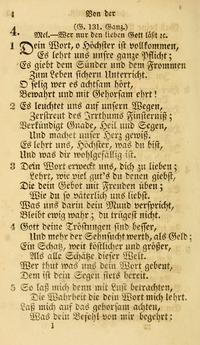 4 Von der
(G. 131. Gang.)
4. Mel.—Wer nur den lieben Gott läßt ꝛc.
1 Dein Wort, o Höchster ist vollkommen,
Es lehrt uns unsre ganze Pflicht;
Es giebt dem Sünder und dem Frommen
Zum Leben sichern Unterricht.
O selig wer es achtsam hört,
Bewahrt und mit Gehorsam ehrt!
2 Es leuchtet uns auf unsern Wegen,
Zerstreut des Irrthums Finsterniß;
Verkündigt Gnade, Heil und Segen,
Und machet unser Herz gewiß.
Es lehrt uns, Höchster, was du bist,
Und was dir wohlgefällig ist.
3 Dein Wort erweckt uns, dich zu lieben;
Lehrt, wie viel guts du denen giebst,
Die dein Gebot mit Freuden üben;
Wie du so väterlich uns liebst.
Was uns darin dein Mund verspricht,
Bleibt ewig wahr; du trügest nicht.
4 Gott deine Tröstungen sind besser,
Und mehr der Sehnsucht werth, als Gold;
Ein Schatz, weit köstlicher und größer,
Als alle Schätze dieser Welt.
Wer thut was uns dein Wort gebeut,
Dem ist dein Segen stets bereit.
5 So laß mich denn mit Lust betrachten,
Die Wahrheit die dein Wort mich lehrt.
Laß mich auf das gehorsam achten,
Was dein Befehl von mir begehrt;
1